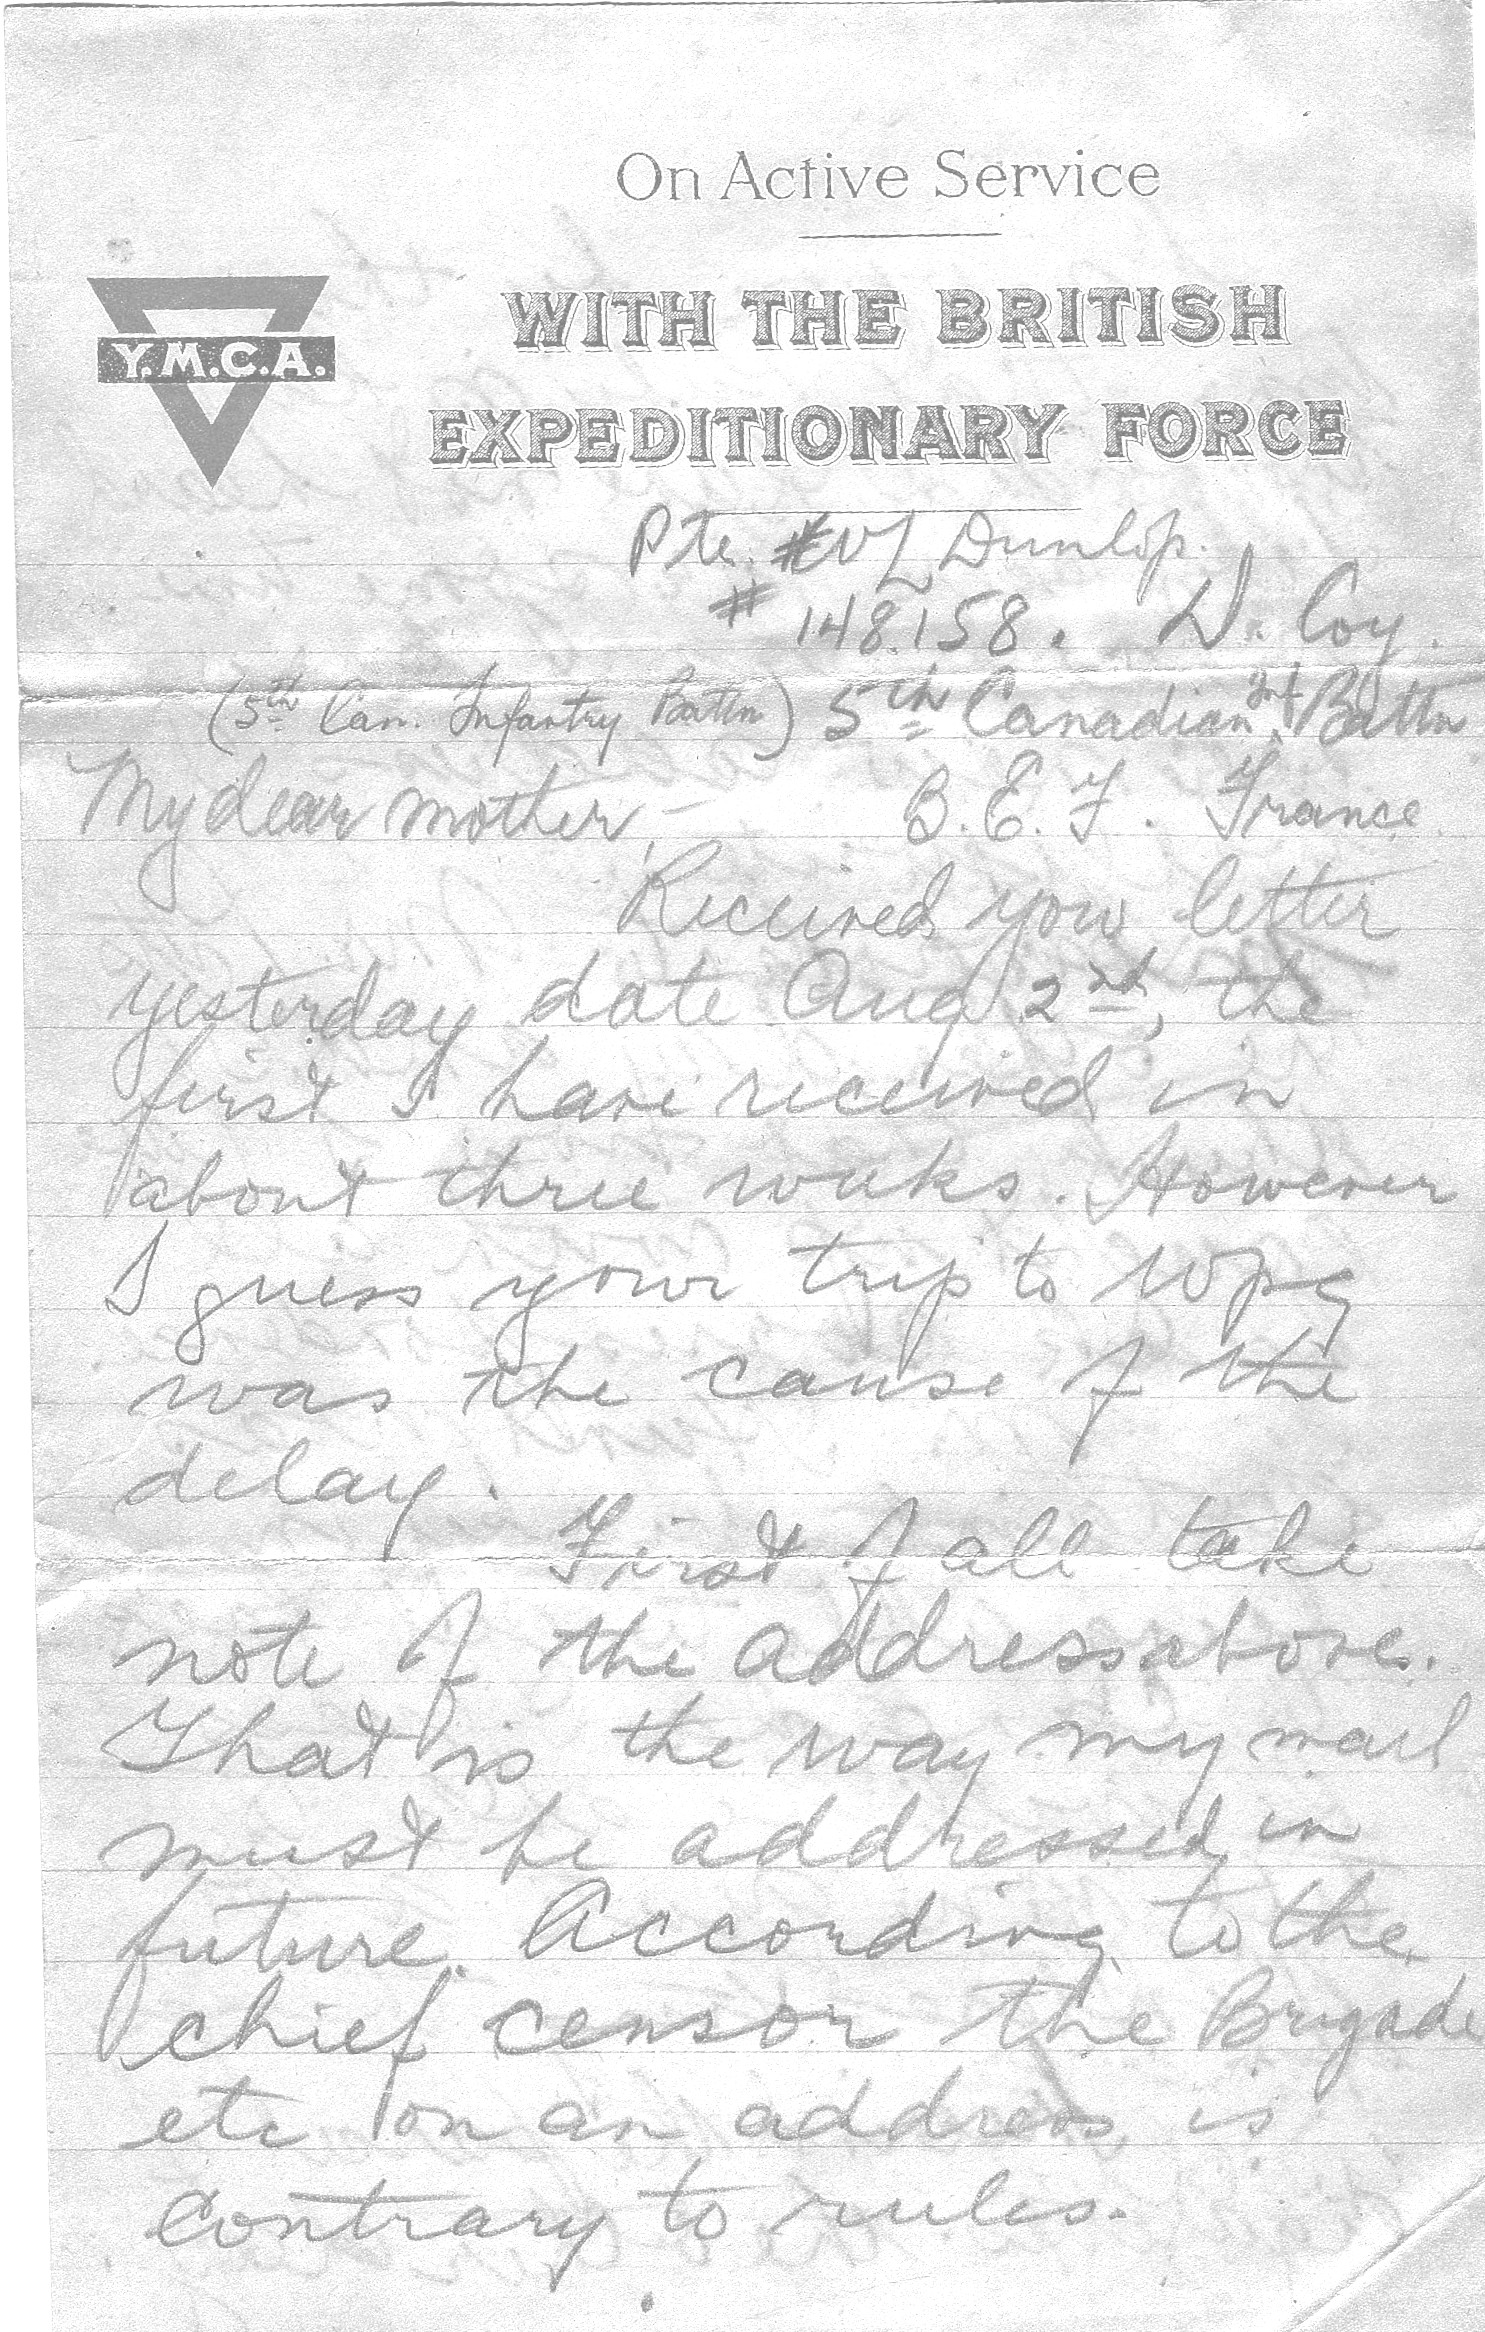 On Active Service
Y.M.C.A.
WITH THE BRITISH
EXPEDITIONARY FORCE
Pte. # VL Dunlop.
# 148158. D. Coy.
(5th Can. Infantry Battn) 5th Canadian Inf. Battn
My dear mother,- B.E.F. France
Received your letter
yesterday date Aug 2nd, the
first I have received in
about three weeks. However
I guess your trip to Wpg
was the cause of the
delay.
First of all take
note of the address above.
That is the way my mail
must be addressed in
future. According to the
chief censor the Brigade
etc on an address is
contrary to rules.